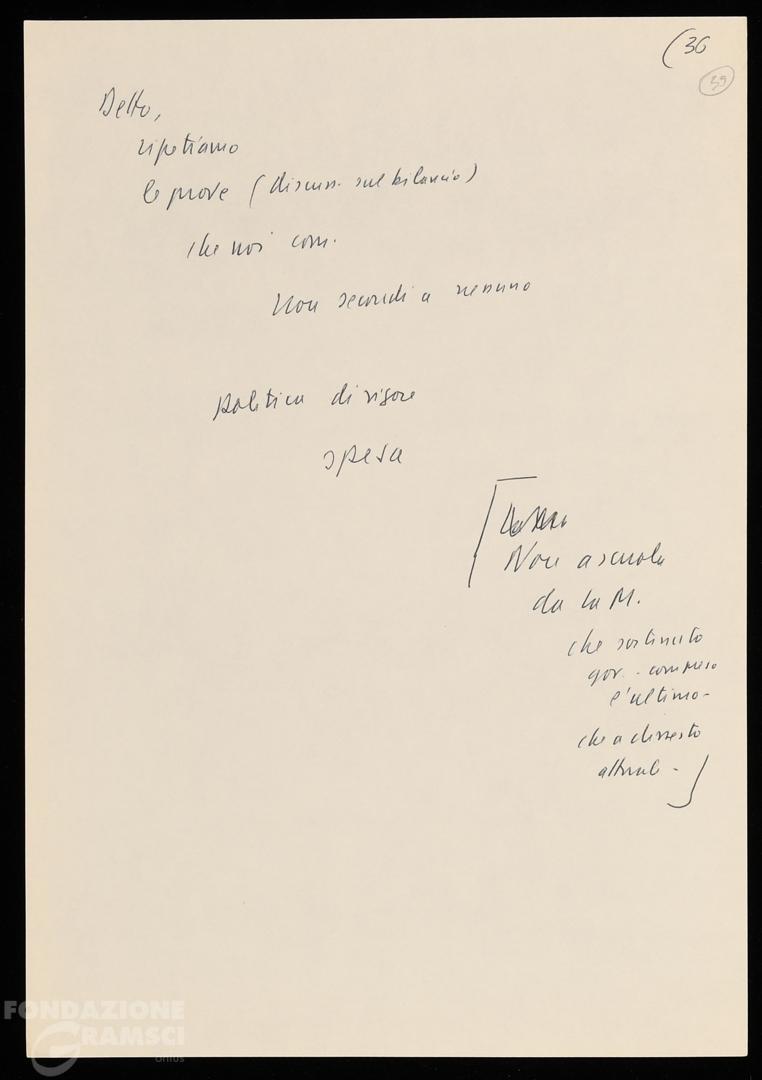 (36
39
Detto,
ripetiamo
le prove (discuss. sul bilancio)
che noi com.
Non secondi a nessuno
politica di rigore
spesa
Non a scuola
da La M.
che sostenuto
gov. - compreso
l'ultimo -
che a dissesto
attuale -
FONDAZIONE
GRAMSCI
onlus